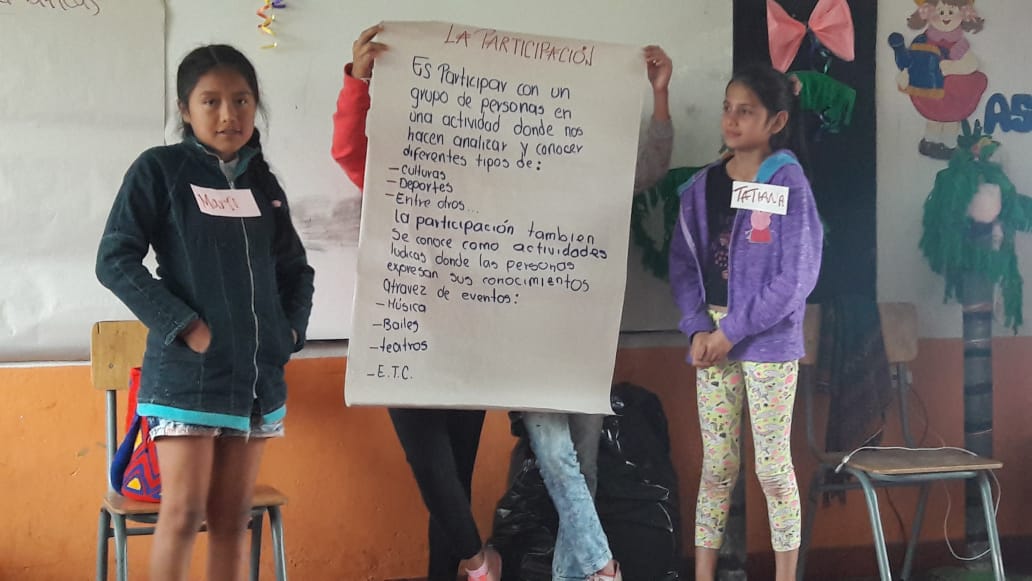 LA PARTICIPACIÓN
Es Participar con un
grupo de personas en
una actividad donde nos
hacen analizar y conocer
diferentes tipos de:
- Culturas
- Deportes
- Entre otros...
la participación tambien
Se conoce como actividades
ludicas donde las personas
expresan sus conocimientos
atravez de eventos:
- Música
- Bailes
- teatros
- E.T.C.
TATIANA
AS